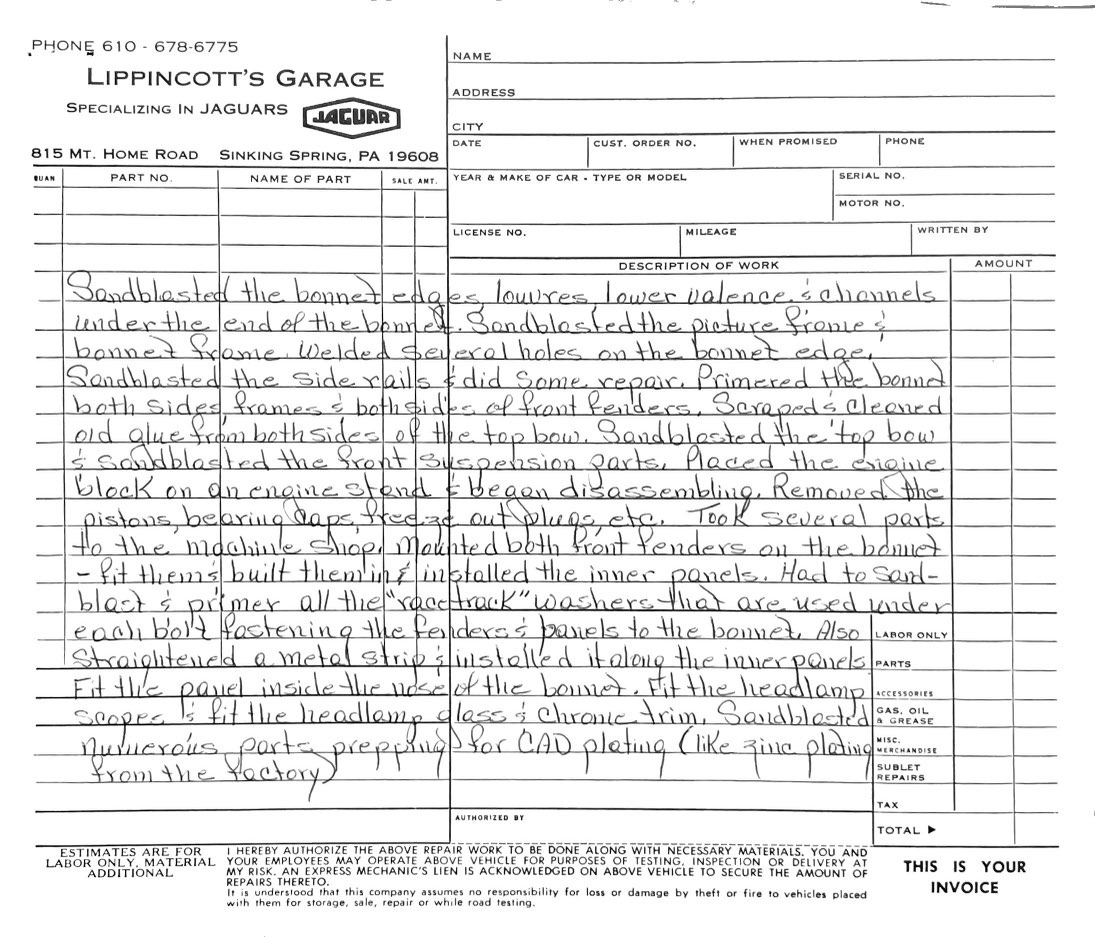 PHONE 610 - 678-6775
LIPPINCOTT'S GARAGE
SPECIALIZING IN JAGUARS JAGUAR
815 MT. HOME ROAD SINKING SPRING, PA 19608
NAME
ADDRESS
CITY
DATE CUST. ORDER NO. WHEN PROMISED PHONE
QUAN PART NO. NAME OF PART SALE AMT. YEAR & MAKE OF CAR - TYPE OR MODEL SERIAL NO.
MOTOR NO.
LICENSE NO. MILEAGE WRITTEN BY
DESCRIPTION OF WORK AMOUNT
Sandblasted the bonnet edges, louvres, lower valence, & channels
under the end of the bonnet. Sandblasted the picture frame &
bonnet frame. Welded several holes on the bonnet edge.
Sandblasted the side rails & did some repair. Primered the bonnet
both sides, frames & both sides of front fenders. Scraped & cleaned
old glue from both sides of the top bow. Sandblasted the top bow
& sandblasted the front suspension parts. Placed the engine
block on an engine stand & began disassembling. Removed the
pistons, bearing caps, freeze out plugs, etc. Took several parts
to the machine shop. Mounted both front fenders on the bonnet
- fit them & built them in & installed the inner panels. Had to sand-
blast & primer all the "race track" washers that are used under
each bolt fastening the fenders & panels to the bonnet. Also
straightened a metal strip & installed it along the inner panels
Fit the panel inside the nose of the bonnet. Fit the headlamp
scopes & fit the headlamp glass & chrome trim. Sandblasted
numerous parts prepping for CAD plating (like zinc plating
from the factory)
LABOR ONLY
PARTS
ACCESSORIES
GAS, OIL
& GREASE
MISC.
MERCHANDISE
SUBLET
REPAIRS
TAX
AUTHORIZED BY
TOTAL ▶
ESTIMATES ARE FOR
LABOR ONLY, MATERIAL
ADDITIONAL
I HEREBY AUTHORIZE THE ABOVE REPAIR WORK TO BE DONE ALONG WITH NECESSARY MATERIALS. YOU AND
YOUR EMPLOYEES MAY OPERATE ABOVE VEHICLE FOR PURPOSES OF TESTING, INSPECTION OR DELIVERY AT
MY RISK. AN EXPRESS MECHANIC'S LIEN IS ACKNOWLEDGED ON ABOVE VEHICLE TO SECURE THE AMOUNT OF
REPAIRS THERETO.
It is understood that this company assumes no responsibility for loss or damage by theft or fire to vehicles placed
with them for storage, sale, repair or while road testing.
THIS IS YOUR
INVOICE